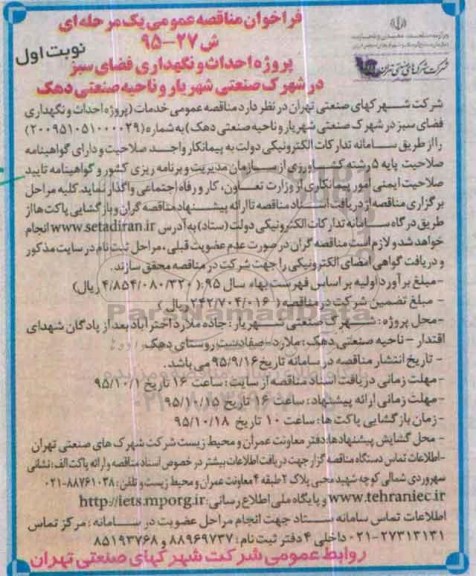 فراخوان مناقصه عمومی یک مرحله‌ای
ش ۲۷-۹۵
نوبت اول
پروژه احداث و نگهداری فضای سبز
در شهرک صنعتی شهریار و ناحیه صنعتی دهک
شرکت شهرکهای صنعتی تهران
شرکت شهرکهای صنعتی تهران در نظر دارد مناقصه عمومی خدمات (پروژه احداث و نگهداری
فضای سبز در شهرک صنعتی شهریار و ناحیه صنعتی دهک) به شماره (۲۰۰۹۵۱۰۵۱۰۰۰۰۲۹)
را از طریق سامانه تدارکات الکترونیکی دولت به پیمانکار واجد صلاحیت و دارای گواهینامه
صلاحیت پایه ۵ رشته کشاورزی از سازمان مدیریت و برنامه ریزی کشور و گواهینامه تایید
صلاحیت ایمنی امور پیمانکاری از وزارت تعاون، کار و رفاه اجتماعی واگذار نماید. کلیه مراحل
برگزاری مناقصه از دریافت اسناد مناقصه تا ارائه پیشنهاد مناقصه گران و بازگشایی پاکت ها از
طریق درگاه سامانه تدارکات الکترونیکی دولت (ستاد) به آدرس www.setadiran.ir انجام
خواهد شد و لازم است مناقصه گران در صورت عدم عضویت قبلی، مراحل ثبت نام در سایت مذکور
و دریافت گواهی امضای الکترونیکی را جهت شرکت در مناقصه محقق سازند.
-مبلغ برآورد اولیه بر اساس فهرست بهاء سال ۹۵: (۴/۸۵۴/۰۸۰/۳۲۰ ریال)
- مبلغ تضمین شرکت در مناقصه: (۲۴۲/۷۰۴/۰۱۶ ریال)
-محل پروژه: شهرک صنعتی شهریار: جاده ملارد اختر آباد بعد از پادگان شهدای
اقتدار - ناحیه صنعتی دهک: ملارد- صفادشت روستای دهک
- تاریخ انتشار مناقصه در سامانه تاریخ ۹۵/۹/۱۶ می باشد.
-مهلت زمانی دریافت اسناد مناقصه از سایت: ساعت ۱۶ تاریخ ۹۵/۱۰/۱
-مهلت زمانی ارائه پیشنهاد: ساعت ۱۶ تاریخ ۹۵/۱۰/۱۵
-زمان بازگشایی پاکت ها: ساعت ۱۰ تاریخ ۹۵/۱۰/۱۸
- محل گشایش پیشنهادها: دفتر معاونت عمران و محیط زیست شرکت شهرک های صنعتی تهران
-اطلاعات تماس دستگاه مناقصه گزار جهت دریافت اطلاعات بیشتر در خصوص اسناد مناقصه و ارائه پاکت الف: نشانی
سهروردی شمالی کوچه شهید محبی پلاک ۲ طبقه ۴ معاونت عمران و محیط زیست و تلفن: ۸۸۷۶۱۰۳۸-۰۲۱
www.tehraniec.ir و پایگاه ملی اطلاع رسانی: http://iets.mporg.ir
اطلاعات تماس سامانه ستاد جهت انجام مراحل عضویت در سامانه: مرکز تماس
۲۷۳۱۳۱۳۱-۰۲۱ داخلی ۴ دفتر ثبت نام: ۸۸۹۶۹۷۳۷ و ۸۵۱۹۳۷۶۸
روابط عمومی شرکت شهرکهای صنعتی تهران
ParsNamadData